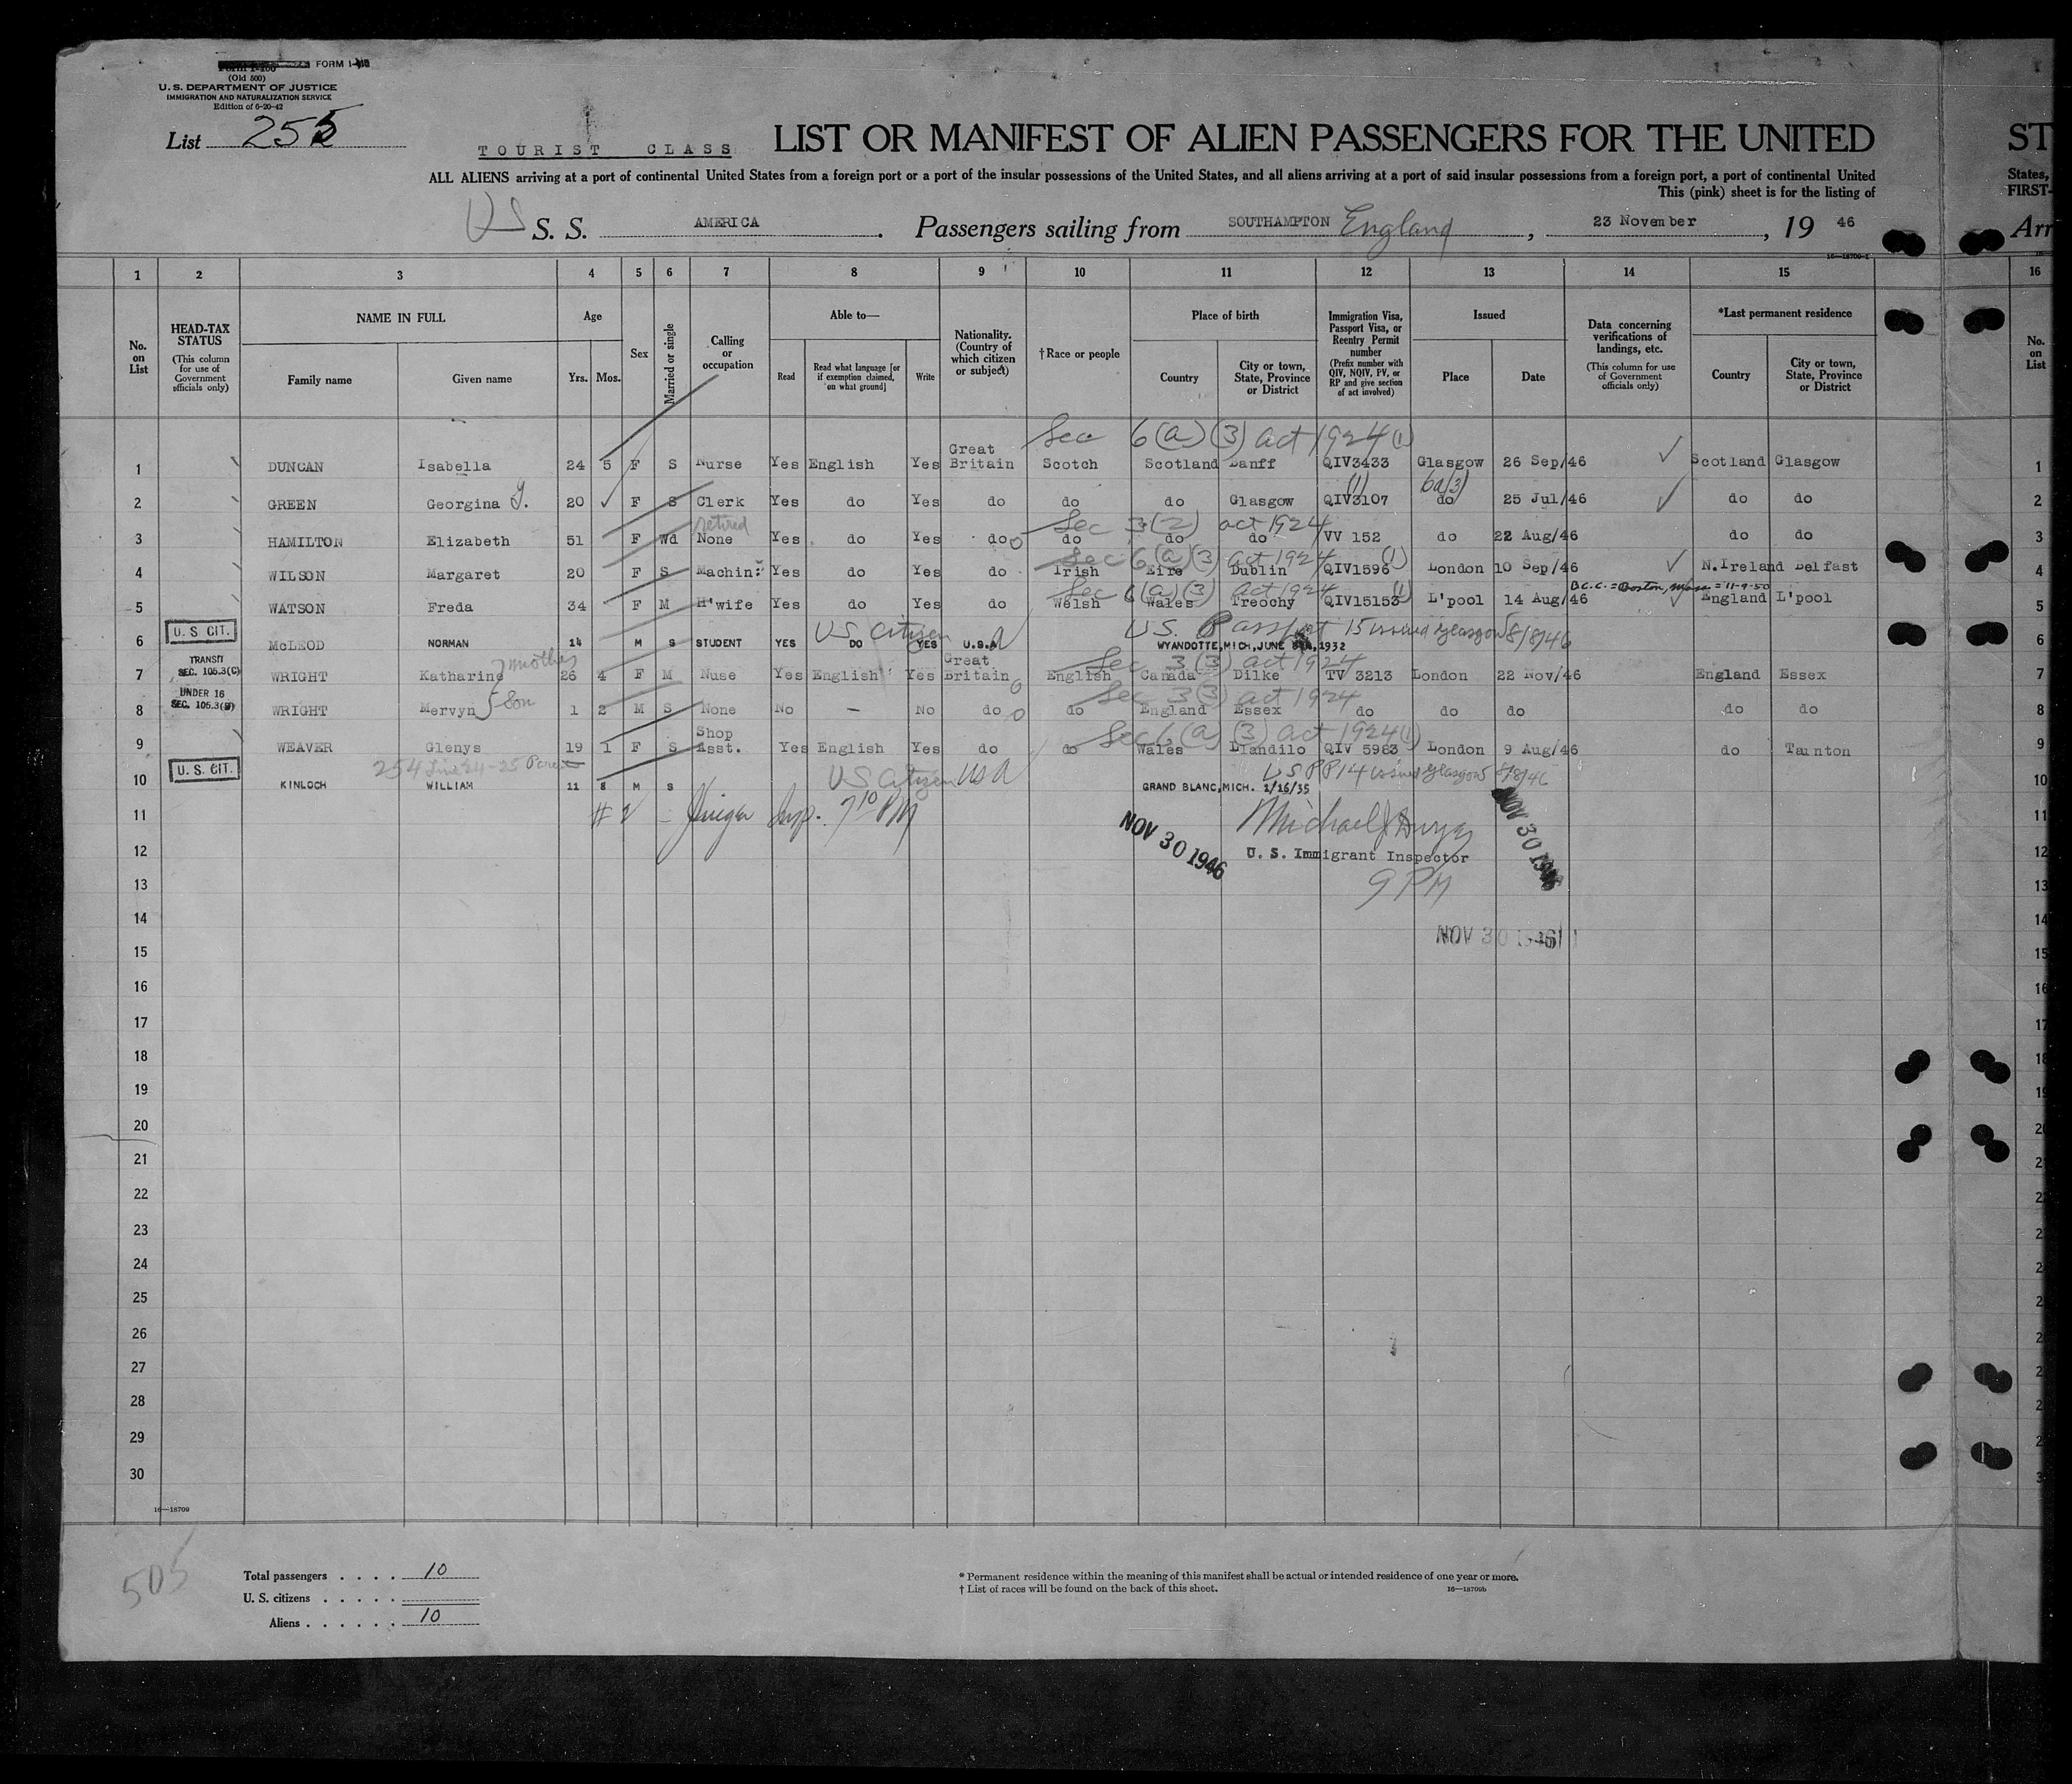 FORM I-415
(Old 500)
U. S. DEPARTMENT OF JUSTICE
IMMIGRATION AND NATURALIZATION SERVICE
Edition of 6-20-42
List 255
TOURIST CLASS
LIST OR MANIFEST OF ALIEN PASSENGERS FOR THE UNITED ST
ALL ALIENS arriving at a port of continental United States from a foreign port or a port of the insular possessions of the United States, and all aliens arriving at a port of said insular possessions from a foreign port, a port of continental United States,
This (pink) sheet is for the listing of FIRST-
US S. S. AMERICA. Passengers sailing from SOUTHAMPTON England, 23 November, 19 46 Arr
1 2 3 4 5 6 7 8 9 10 11 12 13 14 15 16
No. on List
HEAD-TAX STATUS (This column for use of Government officials only)
NAME IN FULL Family name Given name
Age Yrs. Mos.
Sex
Married or single
Calling or occupation
Able to— Read Read what language [or if exemption claimed, on what ground] Write
Nationality. (Country of which citizen or subject)
†Race or people
Place of birth Country City or town, State, Province or District
Immigration Visa, Passport Visa, or Reentry Permit number (Prefix number with QIV, NQIV, PV, or RP and give section of act involved)
Issued Place Date
Data concerning verifications of landings, etc. (This column for use of Government officials only)
*Last permanent residence Country City or town, State, Province or District
No. on List
Sec 6(a)(3) act 1924 (1)
1 DUNCAN Isabella 24 5 F S Nurse Yes English Yes Great Britain Scotch Scotland Banff QIV3433 Glasgow 26 Sep/46 Scotland Glasgow 1
(1) 6a(3)
2 GREEN Georginia J. 20 F S Clerk Yes do Yes do do do Glasgow QIV3107 do 25 Jul/46 do do 2
retired Sec 3(2) act 1924
3 HAMILTON Elizabeth 51 F Wd None Yes do Yes do do do do VV 152 do 22 Aug/46 do do 3
Sec 6(a)(3) act 1924 (1)
4 WILSON Margaret 20 F S Machin: Yes do Yes do Irish Eire Dublin QIV1596 London 10 Sep/46 N.Ireland Belfast 4
Sec 6(a)(3) act 1924 (1) B.C.C. = Boston, Mass = 11-9-50
5 WATSON Freda 34 F M H'wife Yes do Yes do Welsh Wales Treochy QIV15153 L'pool 14 Aug/46 England L'pool 5
U. S. CIT. US citizen U.S. Passport 15 issued Glasgow 8/8/46
6 McLEOD NORMAN 14 M S STUDENT YES DO YES U.S.A WYANDOTTE, MICH, JUNE 1932 6
TRANSIT SEC. 105.3(C) mother Sec 3(3) act 1924
7 WRIGHT Katharine 26 4 F M Nuse Yes English Yes Great Britain English Canada Dilke TV 3213 London 22 Nov/46 England Essex 7
UNDER 16 SEC. 105.3 son Sec 3(3) act 1924
8 WRIGHT Mervyn 1 2 M S None No — No do do England Essex do do do do do 8
Sec 6(a)(3) act 1924 (1)
9 WEAVER Glenys 19 1 F S Shop Asst. Yes English Yes do do Wales Llandilo QIV 5983 London 9 Aug/46 do Taunton 9
U. S. CIT. 254 Line 24-25 US Citizen USA US PP 14 issued Glasgow 8/8/46
10 KINLOCH WILLIAM 11 8 M S GRAND BLANC, MICH. 2/16/35 10
11 #2 – Insp. 7 10 PM
NOV 30 1946
Michael J Dwyer
NOV 30 1946
12 U. S. Immigrant Inspector
13 9 PM 13
14 14
NOV 30 1946
15 15
16 16
17 17
18 18
19 19
20
21
22
23
24
25
26
27
28
29
30
16—18709
505
Total passengers . . . . 10
U. S. citizens . . . . .
Aliens . . . . . . 10
* Permanent residence within the meaning of this manifest shall be actual or intended residence of one year or more.
† List of races will be found on the back of this sheet.
16—18709b